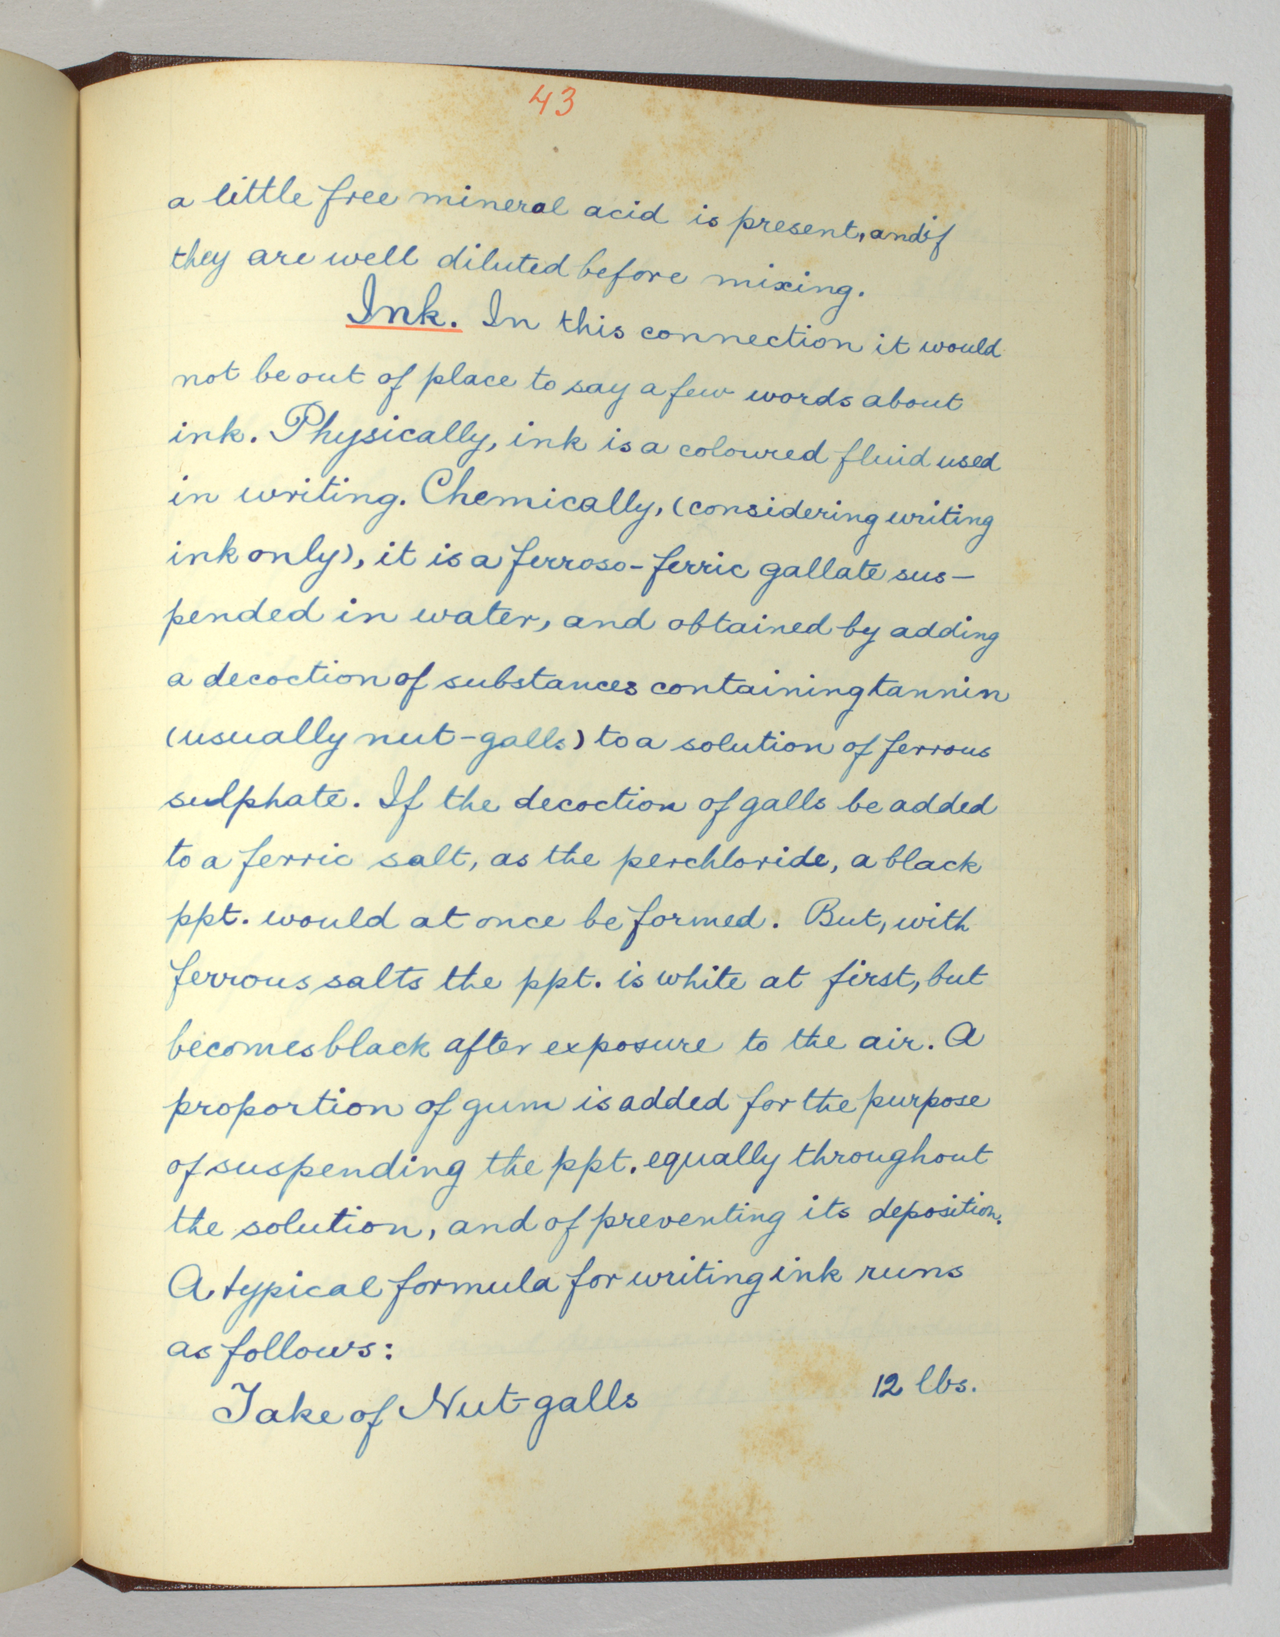 43
a little free mineral acid is present, and if
they are well diluted before mixing.
Ink. In this connection it would
not be out of place to say a few words about
ink. Physically, ink is a coloured fluid used
in writing. Chemically, (considering writing
ink only), it is a ferroso-ferric gallate sus-
pended in water, and obtained by adding
a decoction of substances containing tannin
(usually nut-galls) to a solution of ferrous
sulphate. If the decoction of galls be added
to a ferric salt, as the perchloride, a black
ppt. would at once be formed. But, with
ferrous salts the ppt. is white at first, but
becomes black after exposure to the air. A
proportion of gum is added for the purpose
of suspending the ppt. equally throughout
the solution, and of preventing its deposition.
A typical formula for writing ink runs
as follows:
Take of Nut-galls 12 lbs.